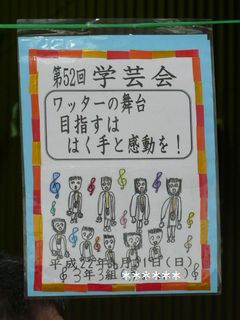 第52回 学芸会
ワッターの舞台
目指すは
はく手と感動を！
平成22年 月31日(日)
3年3組 ******)